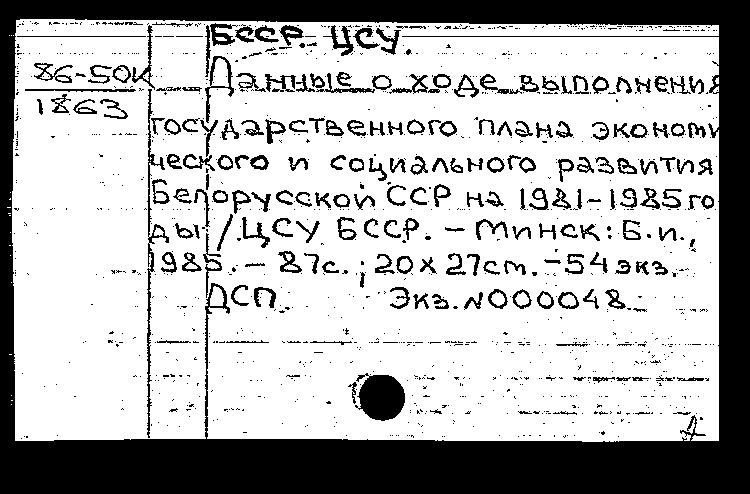 БССР. ЦСУ.
86-50К
1863
Данные о ходе выполнения
государственного плана экономи
ческого и социального развития
Белорусской ССР на 1981-1985 го
ды / ЦСУ БССР. - Минск: Б.и.,
1985. - 87с.; 20х27см. - 54 экз.
ДСП. Экз. №000048